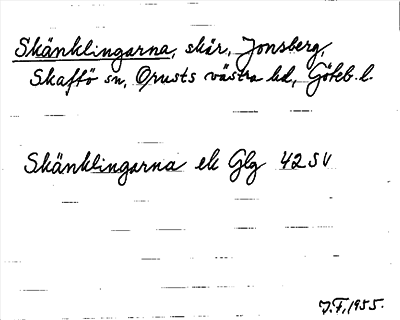 Skänklingarna, skär, Jonsberg,
Skaftö sn, Orusts västra hd, Göteb. l.
Skänklingarna ek Glg 42 SV
J.F, 1955.